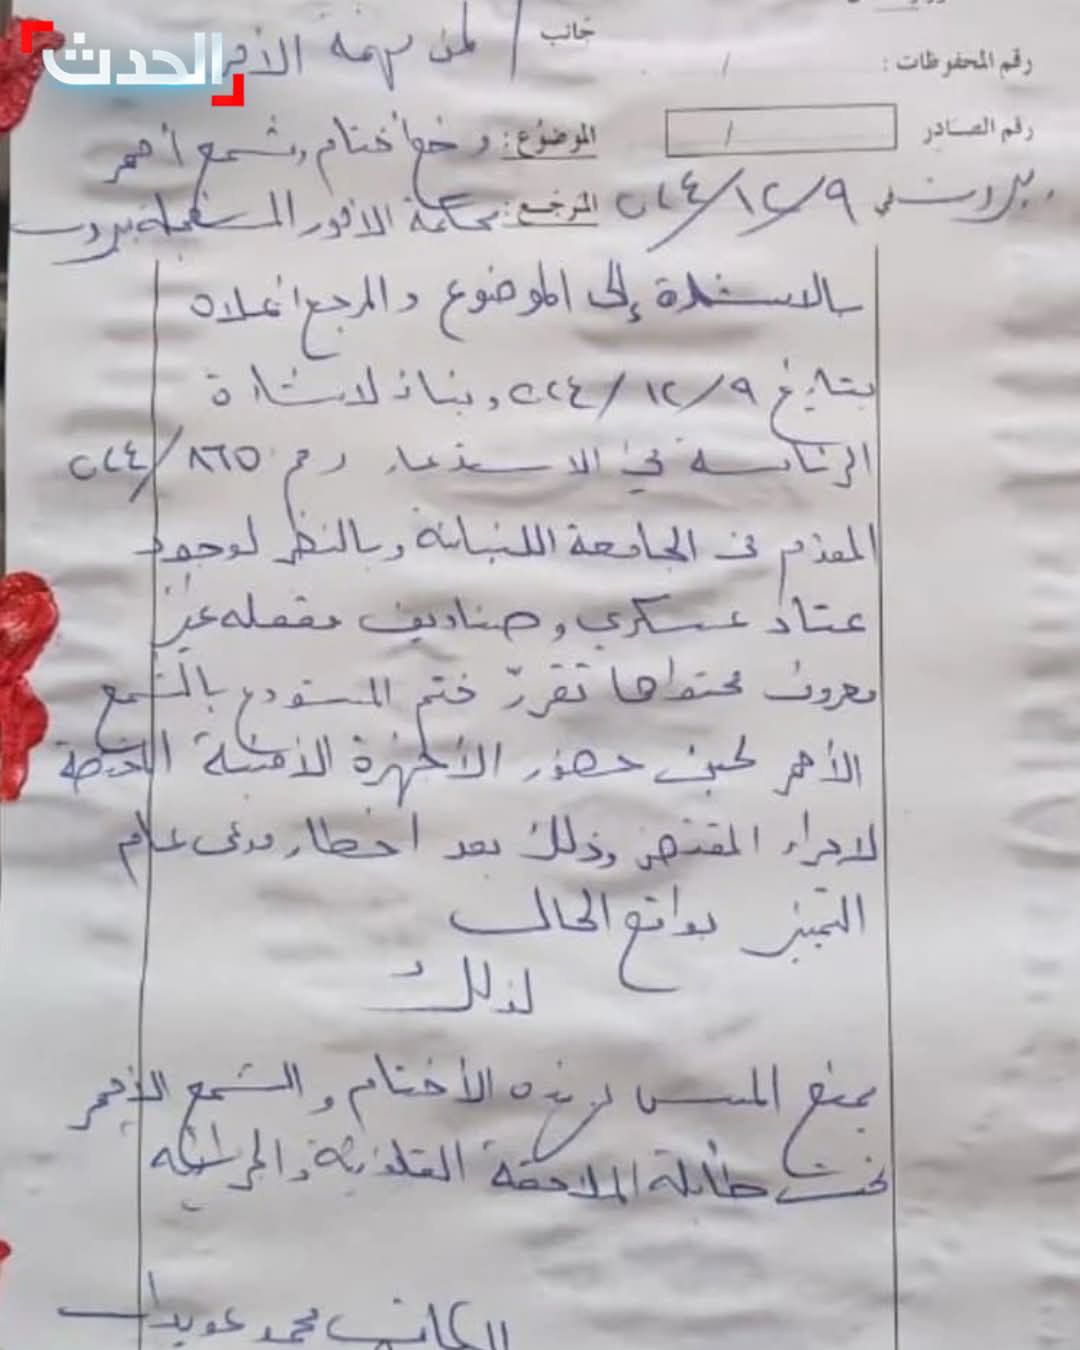 الحدث
جانب / لمن يهمه الأمر
رقم المحفوظات : /
رقم الصادر /
الموضوع : وضع أختام وشمع أحمر
بيروت في ٢٠٢٤/١٢/٩
المرجع : محكمة الأمور المستعجلة بيروت
بالاستنادة إلى الموضوع والمرجع اعلاه
بتاريخ ٢٠٢٤/١٢/٩ وبناء لاشارة
الرئاسة في الاستدعاء رقم ٢٠٢٤/٨٦٥
المقدم من الجامعة اللبنانية وبالنظر لوجود
عتاد عسكري وصناديق مقفله غير
معروف محتواها تقرّر ختم المستودع بالشمع
الأحمر لحين حضور الأجهزة الأمنية المختصة
لاجراء المقتضى وذلك بعد اخطار مدعي عام
التمييز بواقع الحال
لذلك
يمنع المس بهذه الأختام والشمع الأحمر
تحت طائلة الملاحقة القانونية والجزائية
الكاتب محمد عويدات